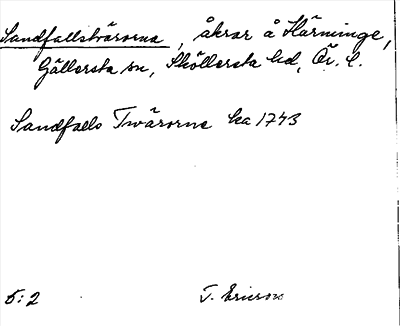 Sandfallstvärorna, åkrar å Skärminge,
Gällersta sn, Sköllersta hd, Ör. l.
Sandfalls Twärorne ka 1743
5:2 T. Ericson